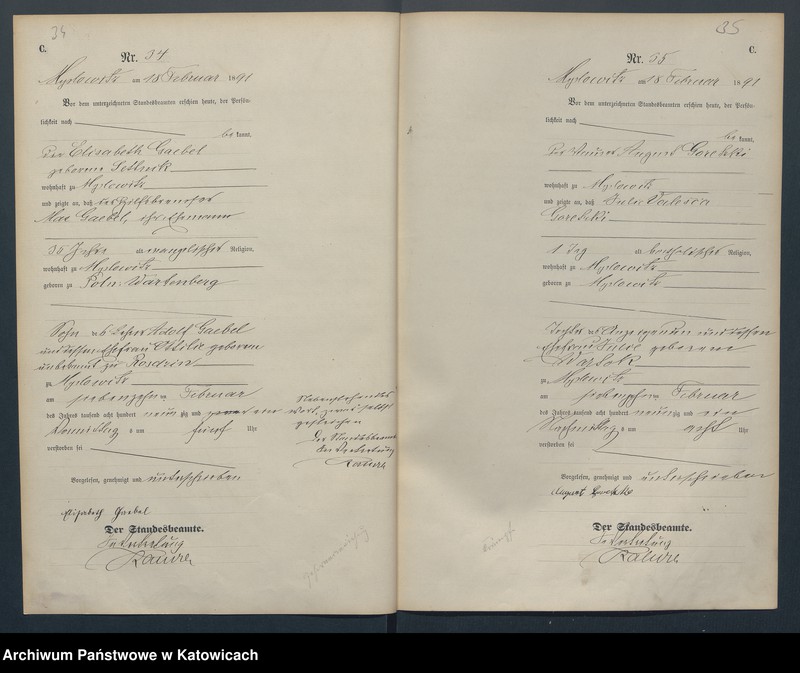 34
C.
Nr. 34
Myslowitz am 18 Februar 1891
Vor dem unterzeichneten Standesbeamten erschien heute, der Persön-
lichkeit nach
be kannt,
die Elisabeth Gaebel
geborene
wohnhaft zu Myslowitz
und zeigte an, daß
Max Gaebel, ihr Ehemann
Jahre alt evangelischer Religion,
wohnhaft zu Myslowitz
geboren zu Poln. Wartenberg
Sohn des Lehrers Adolf Gaebel
und dessen Ehefrau Ottilie geborene
unbekannt zu Rosdzin
zu Myslowitz
am siebenzehnten Februar
des Jahres tausend acht hundert neun zig und
Vormittag s um fünf Uhr
verstorben sei
Nebenstehendes
Wort
gestrichen
Der Standesbeamte
In Vertretung
Vorgelesen, genehmigt und unterschrieben
Elisabeth Gaebel
Der Standesbeamte.
In Vertretung
35
C.
Nr. 35
Myslowitz am 18 Februar 1891
Vor dem unterzeichneten Standesbeamten erschien heute, der Persön-
lichkeit nach
be kannt,
der August Goretzki
wohnhaft zu Myslowitz
und zeigte an, daß Julie Valesca
Goretzki
1 Tag alt katholischer Religion,
wohnhaft zu Myslowitz
geboren zu Myslowitz
Tochter des Anzeigenden und dessen
Ehefrau Julie geborene
zu Myslowitz
am siebenzehnten Februar
des Jahres tausend acht hundert neun zig und ein
Nachmittag s um acht Uhr
verstorben sei
Vorgelesen, genehmigt und unterschrieben
August Goretzki
Der Standesbeamte.
In Vertretung
Archiwum Państwowe w Katowicach